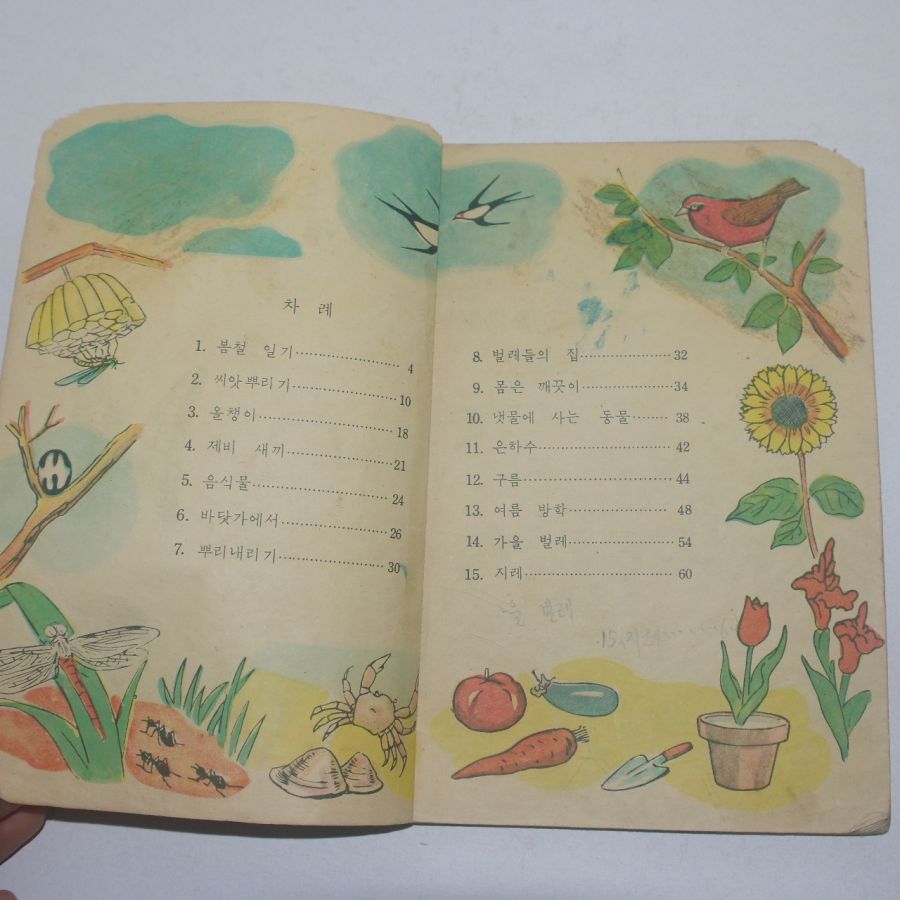 차 례
1. 봄철 일기 4
2. 씨앗뿌리기 10
3. 올챙이 18
4. 제비 새끼 21
5. 음식물 24
6. 바닷가에서 26
7. 뿌리내리기 30
8. 벌레들의 집 32
9. 몸은 깨끗이 34
10. 냇물에 사는 동물 38
11. 은하수 42
12. 구름 44
13. 여름 방학 48
14. 가을 벌레 54
15. 지레 60
을 벌레
15. 지레